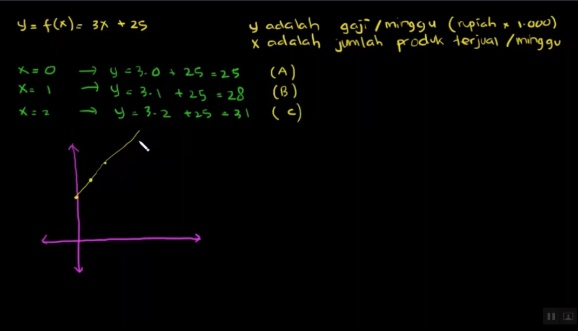 y = f(x) = 3x + 25
y adalah gaji/minggu (rupiah x 1.000)
x adalah jumlah produk terjual/minggu
x = 0 → y = 3.0 + 25 = 25 (A)
x = 1 → y = 3.1 + 25 = 28 (B)
x = 2 → y = 3.2 + 25 = 31 (C)